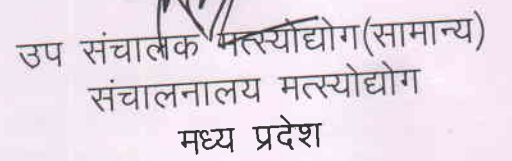 उप संचालक मत्स्योद्योग(सामान्य)
संचालनालय मत्स्योद्योग
मध्य प्रदेश